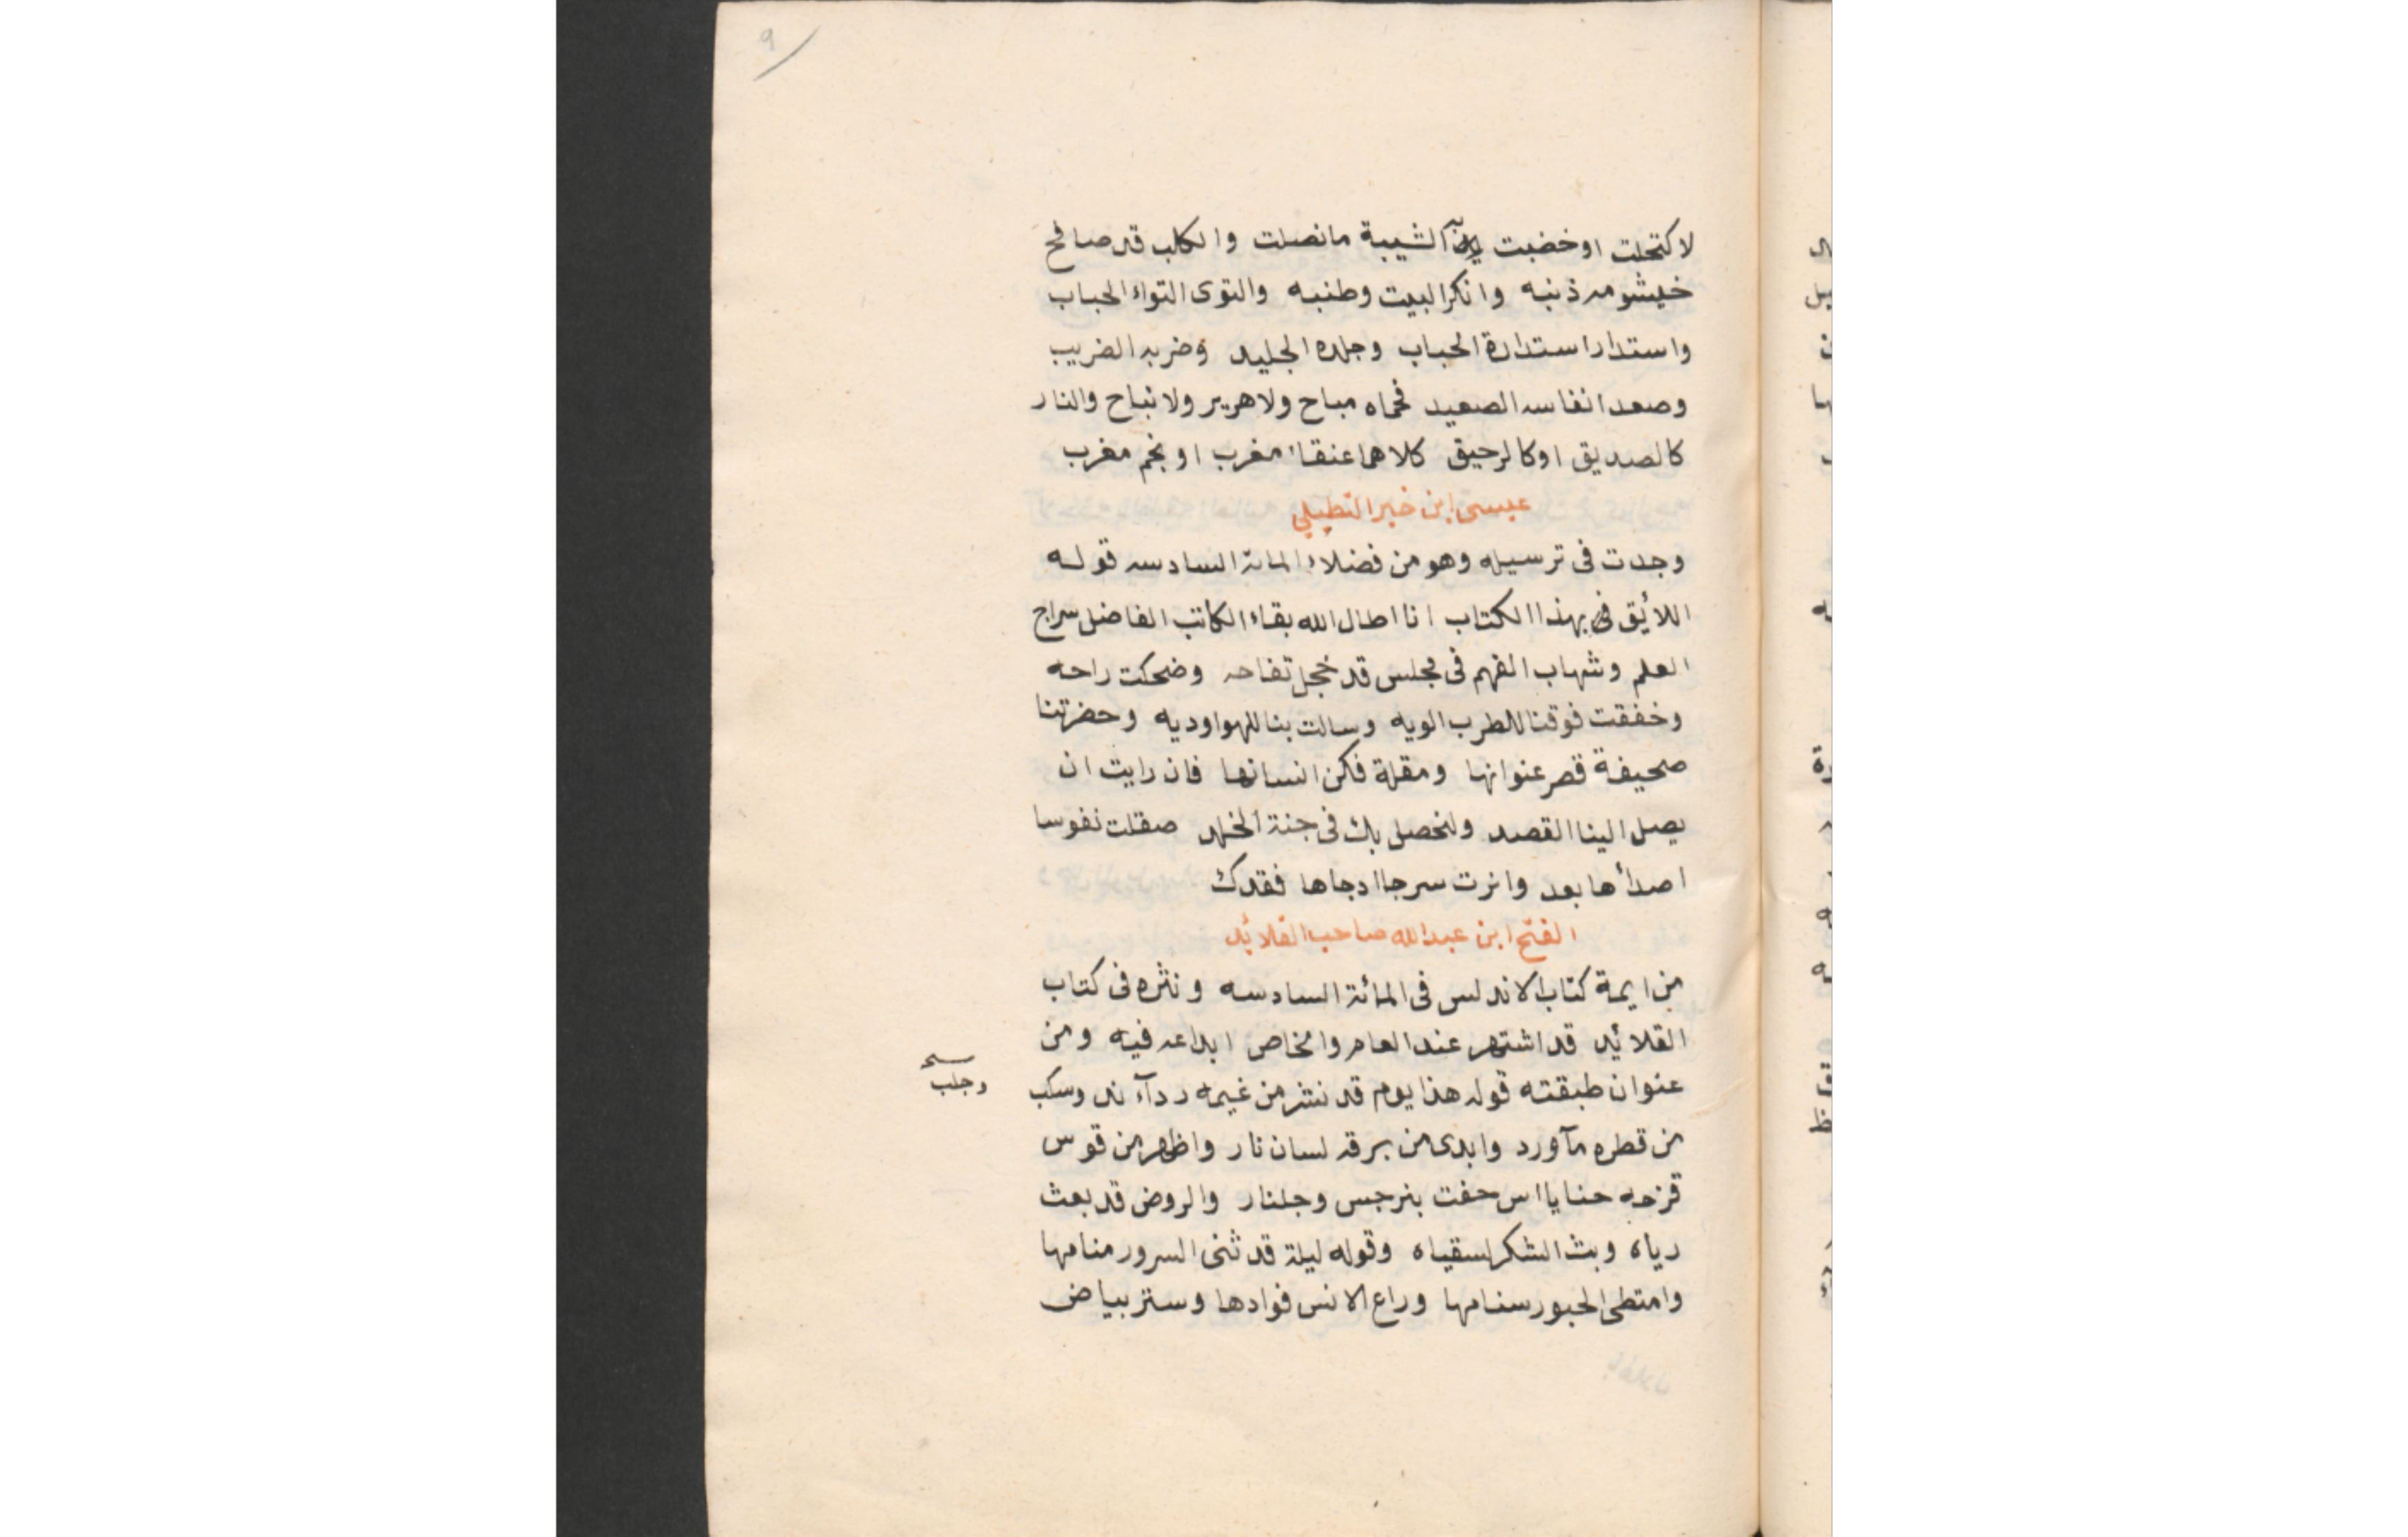 9
لاكتحلت او خضبت الشيبة مانصلت والكلب قد صافح
خيشومه ذنبه وانكر البيت وطنبه والتوى التواء الحباب
واستدار استدارة الحباب وجلده الجليد وضربه الضريب
وصعد انفاسه الصعيد فحماه مباح ولا هرير ولا نباح والنار
كالصديق او كالرحيق كلاهما عنقاء مغرب او نجم مغرب
عيسى ابن خير التطيلي
وجدت فى ترسيله وهو من فضلاء المائة السادسه قوله
اللائق بهذا الكتاب انا اطال الله بقاء الكاتب الفاضل سراج
العلم وشهاب الفهم فى مجلس قد خجل تفاحه وضحكت راحه
وخفقت فوقنا للطرب الويه وسالت بنا للهو اوديه وحضرتنا
صحيفة قصر عنوانها ومقلة فكن انسانها فان رايت ان
يصل الينا القصد ولنحصل بك فى جنة الخلد صقلت نفوسا
اصدأها بعد وانرت سرجا ادجاها فقدك
الفتح ابن عبدالله صاحب القلائد
من ايمة كتاب الاندلس فى المائة السادسه ونثره فى كتاب
القلائد قد اشتهر عند العام والخاص ابداعه فيه ومن
عنوان طبقته قوله هذا يوم قد نثر من غيمه ردآء ند وسكب
وجلب
من قطره مآورد وابدى من برقه لسان نار واظهر من قوس
قزحه حنايا اس حفت بنرجس وجلنار والروض قد بعث
رياه وبث الشكر لسقياه وقوله ليلة قد ثنى السرور منامها
وامتطى الحبور سنامها وراع الانس فوادها وستر بياض